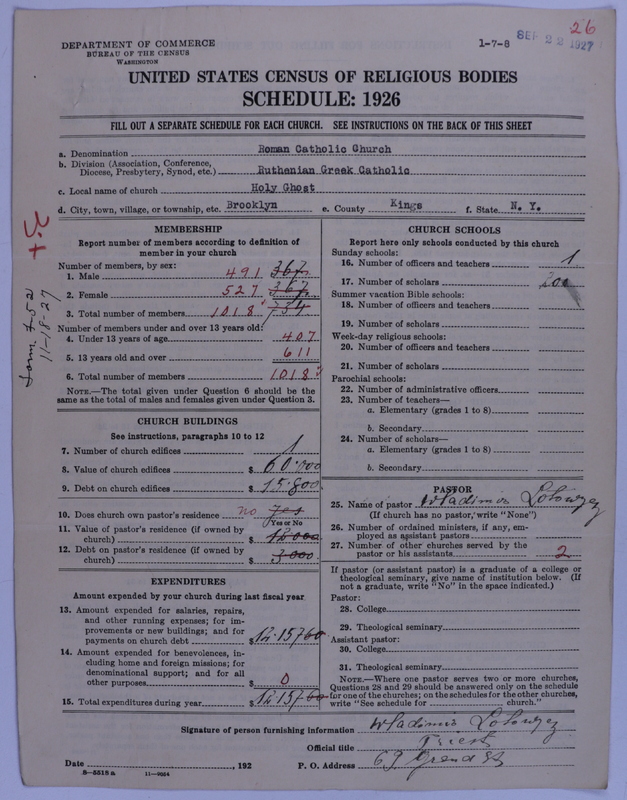 26
SEP 22 1927
1-7-8
DEPARTMENT OF COMMERCE
BUREAU OF THE CENSUS
WASHINGTON
UNITED STATES CENSUS OF RELIGIOUS BODIES
SCHEDULE: 1926
FILL OUT A SEPARATE SCHEDULE FOR EACH CHURCH. SEE INSTRUCTIONS ON THE BACK OF THIS SHEET
a. Denomination Roman Catholic Church
b. Division (Association, Conference,
Diocese, Presbytery, Synod, etc.) Ruthenian Greek Catholic
c. Local name of church Holy Ghost
d. City, town, village, or township, etc. Brooklyn e. County Kings f. State N. Y.
11-18-27
MEMBERSHIP
Report number of members according to definition of
member in your church
Number of members, by sex:
1. Male 491 367
2. Female 527 367
3. Total number of members 1018 734
Number of members under and over 13 years old:
4. Under 13 years of age 407
5. 13 years old and over 611
6. Total number of members 1018
NOTE.—The total given under Question 6 should be the
same as the total of males and females given under Question 3.
CHURCH BUILDINGS
See instructions, paragraphs 10 to 12
7. Number of church edifices 1
8. Value of church edifices $ 60.000
9. Debt on church edifices $ 15.800
10. Does church own pastor's residence no yes
Yes or No
11. Value of pastor's residence (if owned by
church) $ 12000
12. Debt on pastor's residence (if owned by
church) $ 3.000
EXPENDITURES
Amount expended by your church during last fiscal year
13. Amount expended for salaries, repairs,
and other running expenses; for im-
provements or new buildings; and for
payments on church debt $ 12.157 60
14. Amount expended for benevolences, in-
cluding home and foreign missions; for
denominational support; and for all
other purposes $ 0
15. Total expenditures during year $ 12157 60
CHURCH SCHOOLS
Report here only schools conducted by this church
Sunday schools:
16. Number of officers and teachers 1
17. Number of scholars 200
Summer vacation Bible schools:
18. Number of officers and teachers
19. Number of scholars
Week-day religious schools:
20. Number of officers and teachers
21. Number of scholars
Parochial schools:
22. Number of administrative officers
23. Number of teachers—
a. Elementary (grades 1 to 8)
b. Secondary
24. Number of scholars—
a. Elementary (grades 1 to 8)
b. Secondary
PASTOR
25. Name of pastor Wladimir
(If church has no pastor, write "None")
26. Number of ordained ministers, if any, em-
ployed as assistant pastors
27. Number of other churches served by the
pastor or his assistants 2
If pastor (or assistant pastor) is a graduate of a college or
theological seminary, give name of institution below. (If
not a graduate, write "No" in the space indicated.)
Pastor:
28. College
29. Theological seminary
Assistant pastor:
30. College
31. Theological seminary
NOTE.—Where one pastor serves two or more churches,
Questions 28 and 29 should be answered only on the schedule
for one of the churches; on the schedules for the other churches,
write "See schedule for church."
Signature of person furnishing information Wladimir
Official title Priest
Date , 192 P. O. Address Grand St
8—5518 a 11—9024